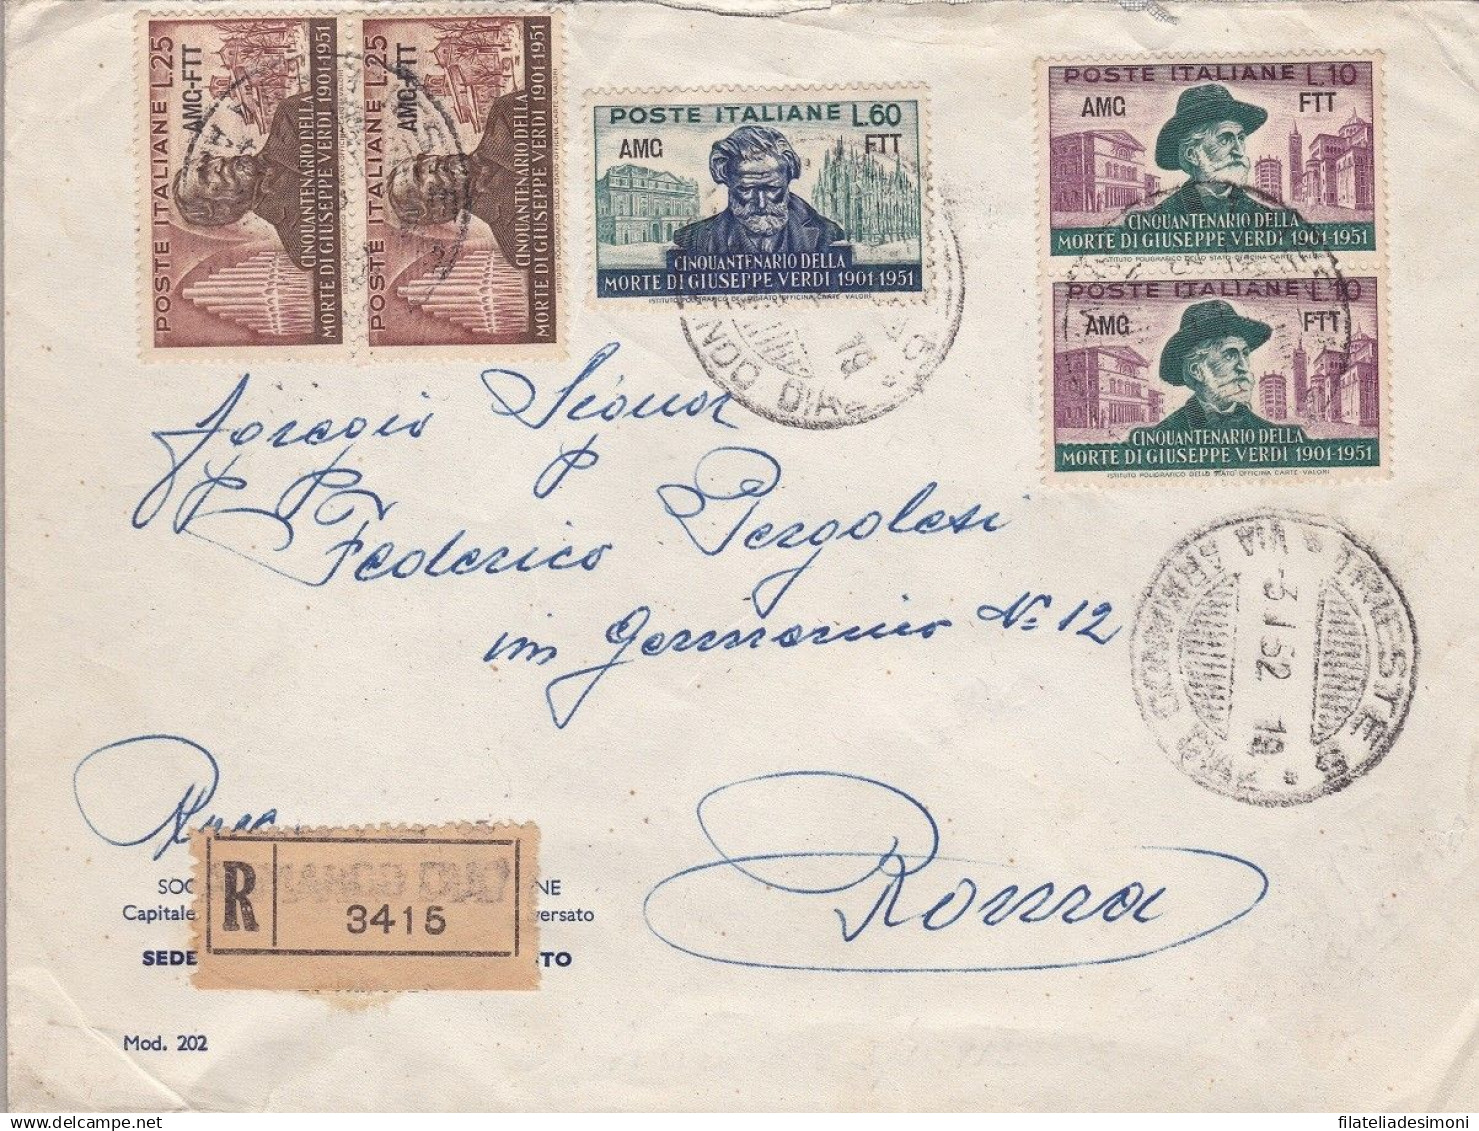 POSTE ITALIANE L.25
AMG-FTT
CINQUANTENARIO DELLA
MORTE DI GIUSEPPE VERDI 1901-1951
POSTE ITALIANE L.25
AMG-FTT
CINQUANTENARIO DELLA
MORTE DI GIUSEPPE VERDI 1901-1951
POSTE ITALIANE L.60
AMG FTT
CINQUANTENARIO DELLA
MORTE DI GIUSEPPE VERDI 1901-1951
ISTITUTO POLIGRAFICO DELLO STATO OFFICINA CARTE-VALORI
POSTE ITALIANE L.10
AMG FTT
CINQUANTENARIO DELLA
MORTE DI GIUSEPPE VERDI 1901-1951
ISTITUTO POLIGRAFICO DELLO STATO OFFICINA CARTE-VALORI
POSTE ITALIANE L.10
AMG FTT
CINQUANTENARIO DELLA
MORTE DI GIUSEPPE VERDI 1901-1951
ISTITUTO POLIGRAFICO DELLO STATO OFFICINA CARTE-VALORI
Signor
Federico Pergolesi
N. 12
TRIESTE 5
-3.1.52 19
Roma
R
3415
SOC NE
Capitale versato
SEDE TO
Mod. 202
filateliadesimoni.com